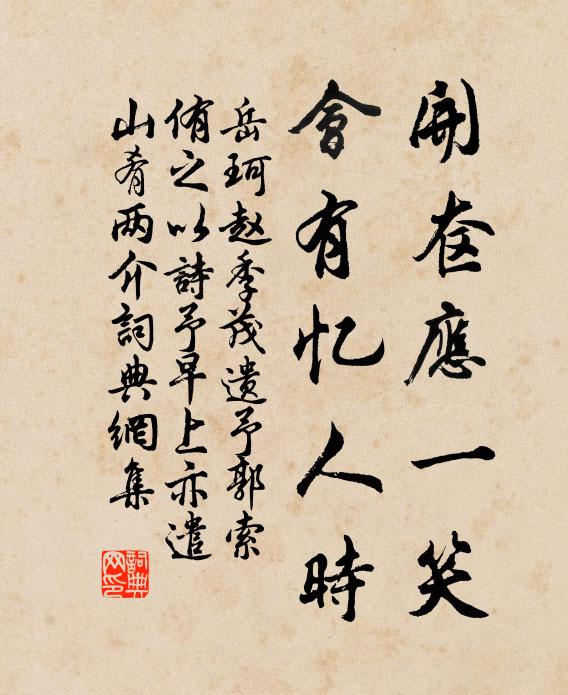 開奁應一笑
會有忆人時
岳珂赵季茂遺予郭索
侑之以詩予早上亦遣
山肴两介詞典網集
詞典
网印